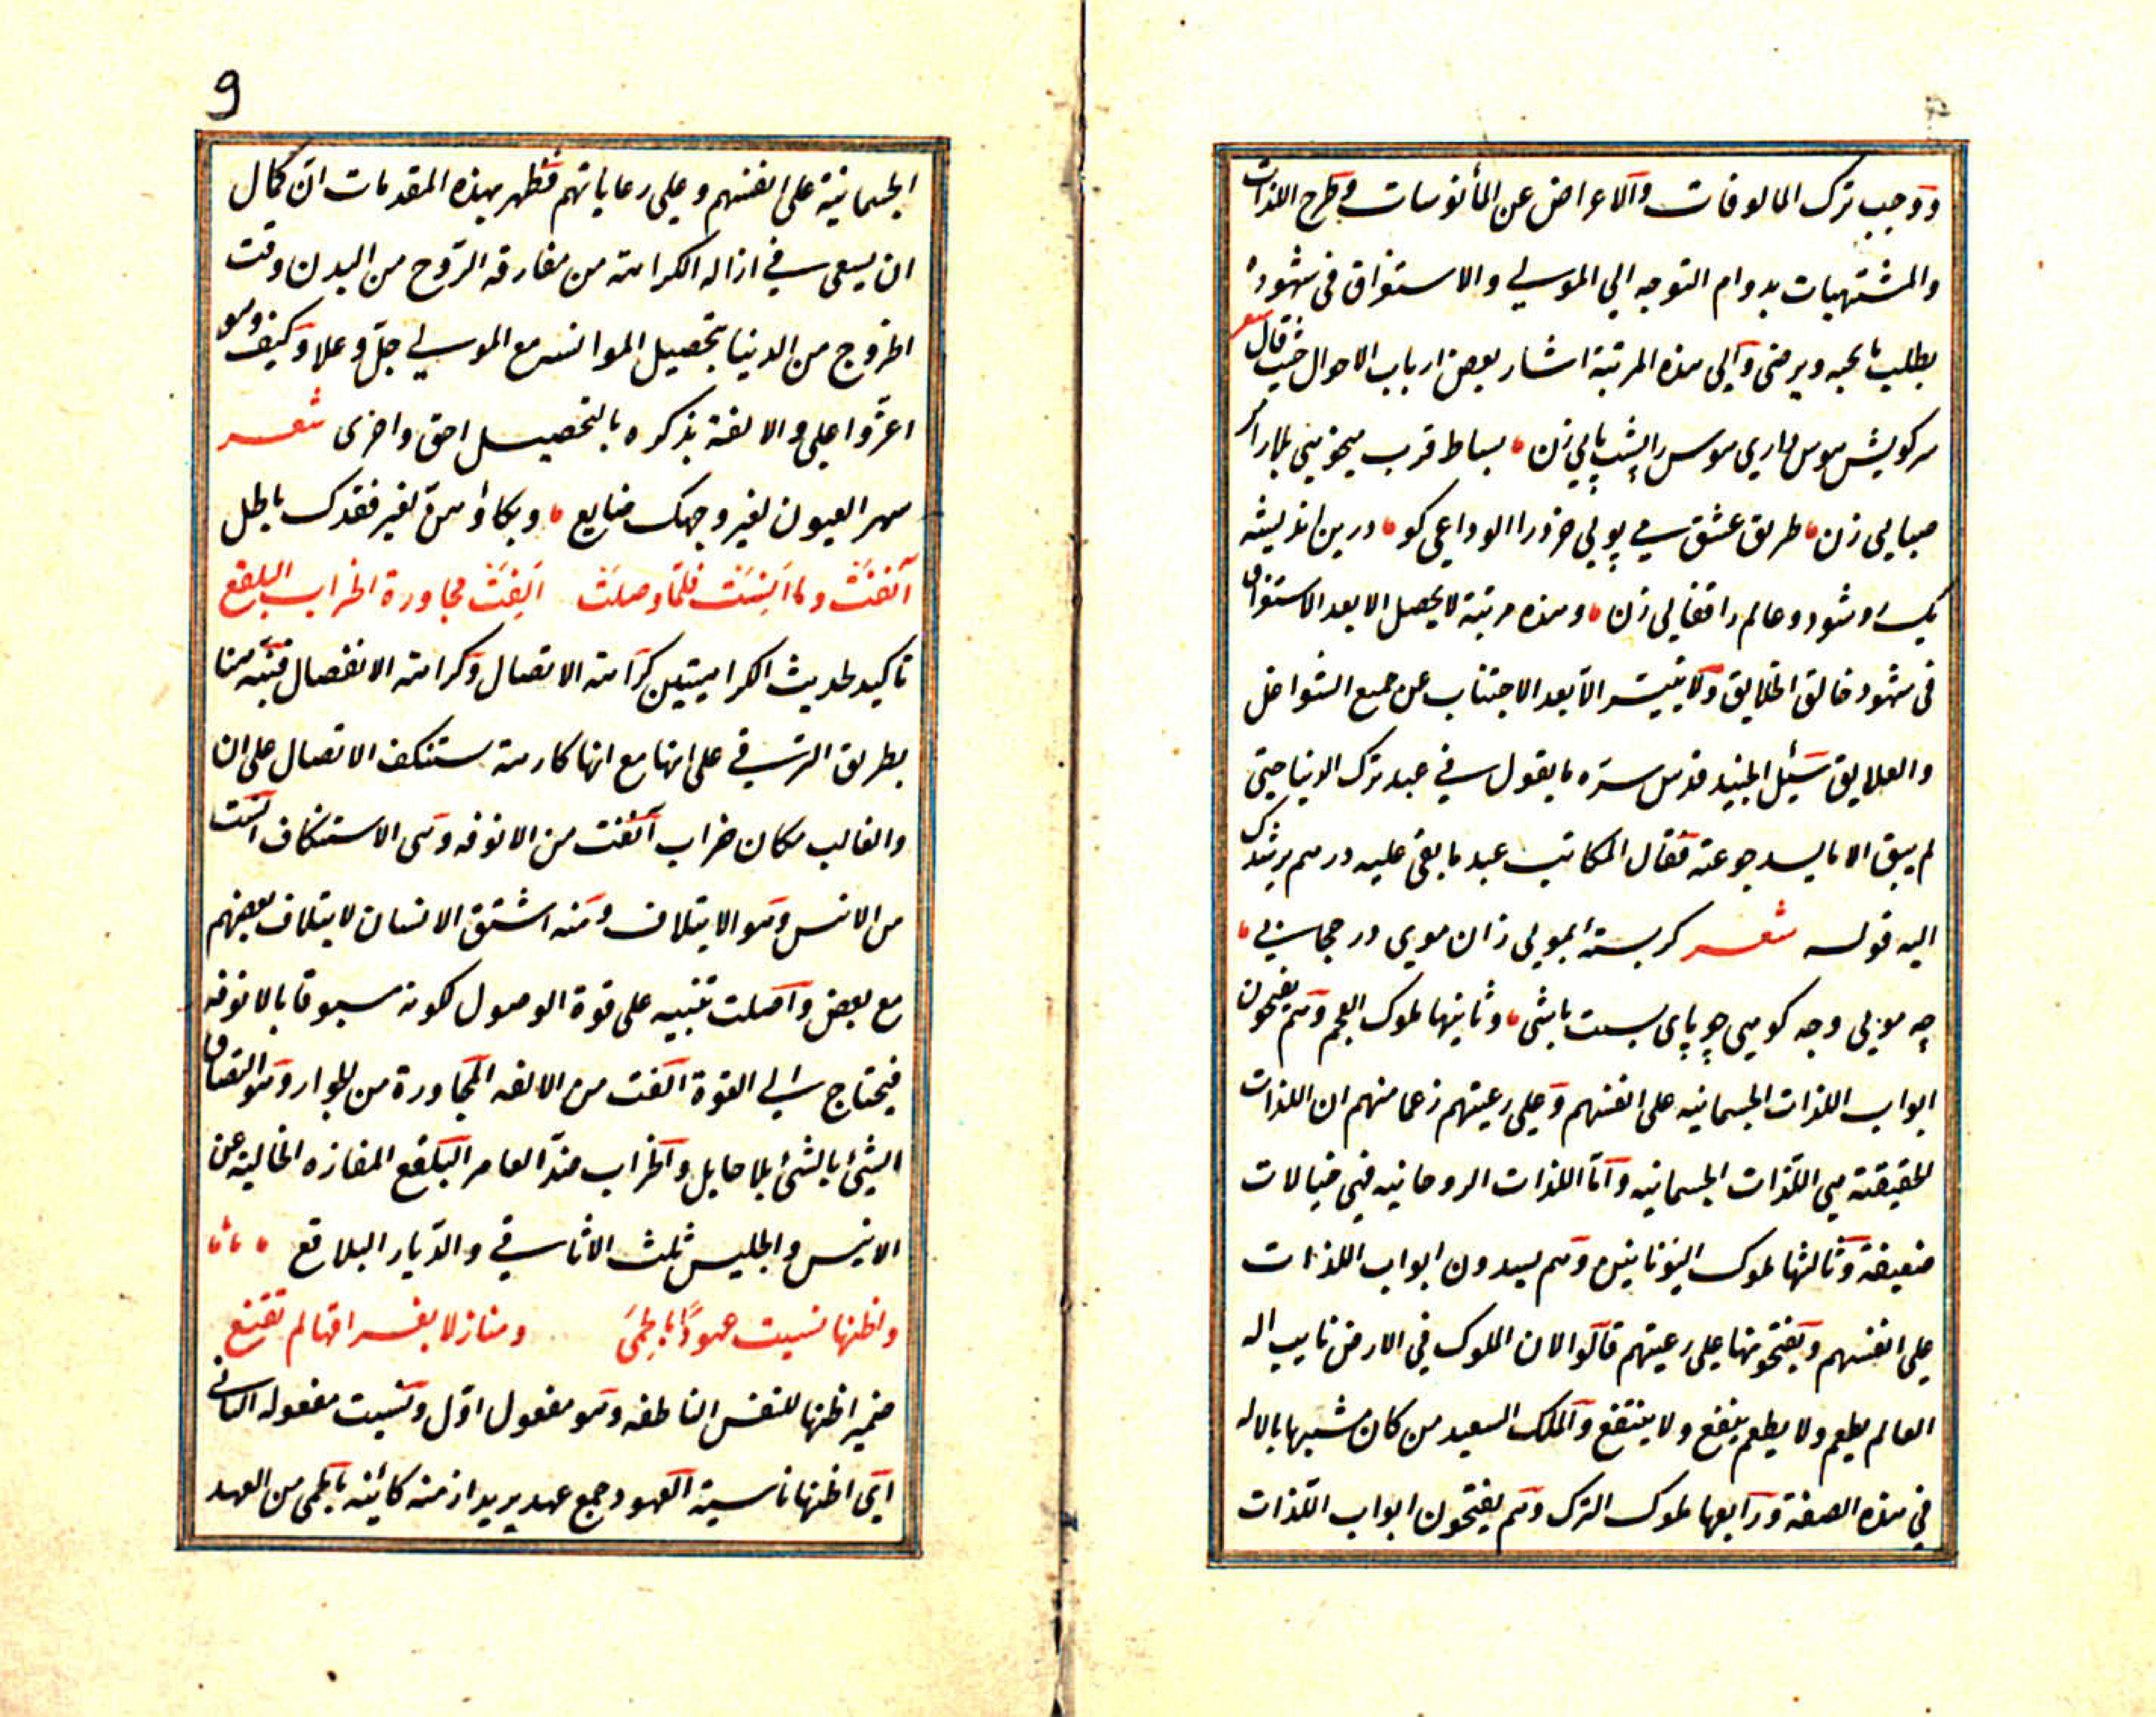 ووجب ترك المالوفات والاعراض عن المأنوسات وطرح اللذات
والمشتهيات بدوام التوجه الي المولي والاستغراق في شهوده
يطلب ما يحبه ويرضى والي هذه المرتبة اشار بعض ارباب الاحوال حيث قال شعر
سر كويش هوس داري هوس را پشت پايي زن بساط قرب ميجويي بلا را مر
حبايي زن طريق عشق مي پويي خرد را الوداعي كو درين انديشه
يك رو شو دو عالم را قفايي زن وهذه مرتبة لا يحصل الا بعد الاستغراق
في شهود خالق الخلايق ولا يتيسر الا بعد الاجتناب عن جميع الشواغل
والعلايق سئل الجنيد قدس سره ما يقول في عبد ترك الدنيا حتي
لم يبق الا ما يسد جوعته فقال المكاتب عبد ما بقي عليه درهم يرشدك
اليه قوله شعر كر بسته بمويي زان موي در حجابي
چه مويي وچه كوهي چو پاي بست باشي وثانيها ملوك العجم وهم يفتحون
ابواب اللذات الجسمانيه على انفسهم وعلي رعيتهم زعما منهم ان اللذات
الحقيقته هي اللذات الجسمانيه واما اللذات الروحانيه فهي خيالات
ضعيفة وثالثها ملوك اليونانيين وهم يسدون ابواب اللذات
علي انفسهم ويفتحونها علي رعيتهم قالوا لان الملوك في الارض نايب اله
العالم يطعم ولا يطعم ينفع ولا ينتفع والملك السعيد من كان مشبها بالاله
في هذه الصفة ورابعها ملوك الترك وهم يفتحون ابواب اللذات
9
الجسمانية على انفسهم وعلي رعاياتهم فظهر بهذه المقدمات ان كمال
ان يسعى في ازاله الكرامته من مفارقه الروح من البدن وقت
الخروج من الدنيا بتحصيل الموانسه مع المولي جل وعلا وكيف وهو
اعز واعلي والالفة بذكره بالتحصيل احق واحرى شعر
سهر العيون لغير وجهك ضايع وبكاؤهن لغير فقدك باطل
انفت وما انست فلما وصلت الفت مجاورة الخراب البلقع
تاكيد لحديث الكراهيتين كراهته الاتصال وكراهته الانفصال فنبه هنا
بطريق الترقي على انها مع انها كارهته ستنكف الاتصال على ان
والغالب مكان خراب انفت من الانوفه وهي الاستنكاف انست
من الانس وهو الايتلاف ومنه اشتق الانسان لايتلاف بعضهم
مع بعض واصلت تنبيه على قوة الوصول لكونه سبوقا بالانوفه
فيحتاج الي القوة الفت من الالفه المجاورة من الجوار وهو التصاق
الشئ بالشئ بلا حايل والخراب ضد العامر البلقع المفازه الخاليه عن
الانيس والجليس ثلث الاثافي والديار البلاقع
واظنها نسيت عهودا بالحمى ومنازلا بفراقها لم تقنع
ضمير اظنها للنفس الناطقه وهو مفعول اول ونسيت مفعوله الثاني
اي اظنها ناسية العهود جمع عهد يريد ازمنه كائنه بالحمى من العهد